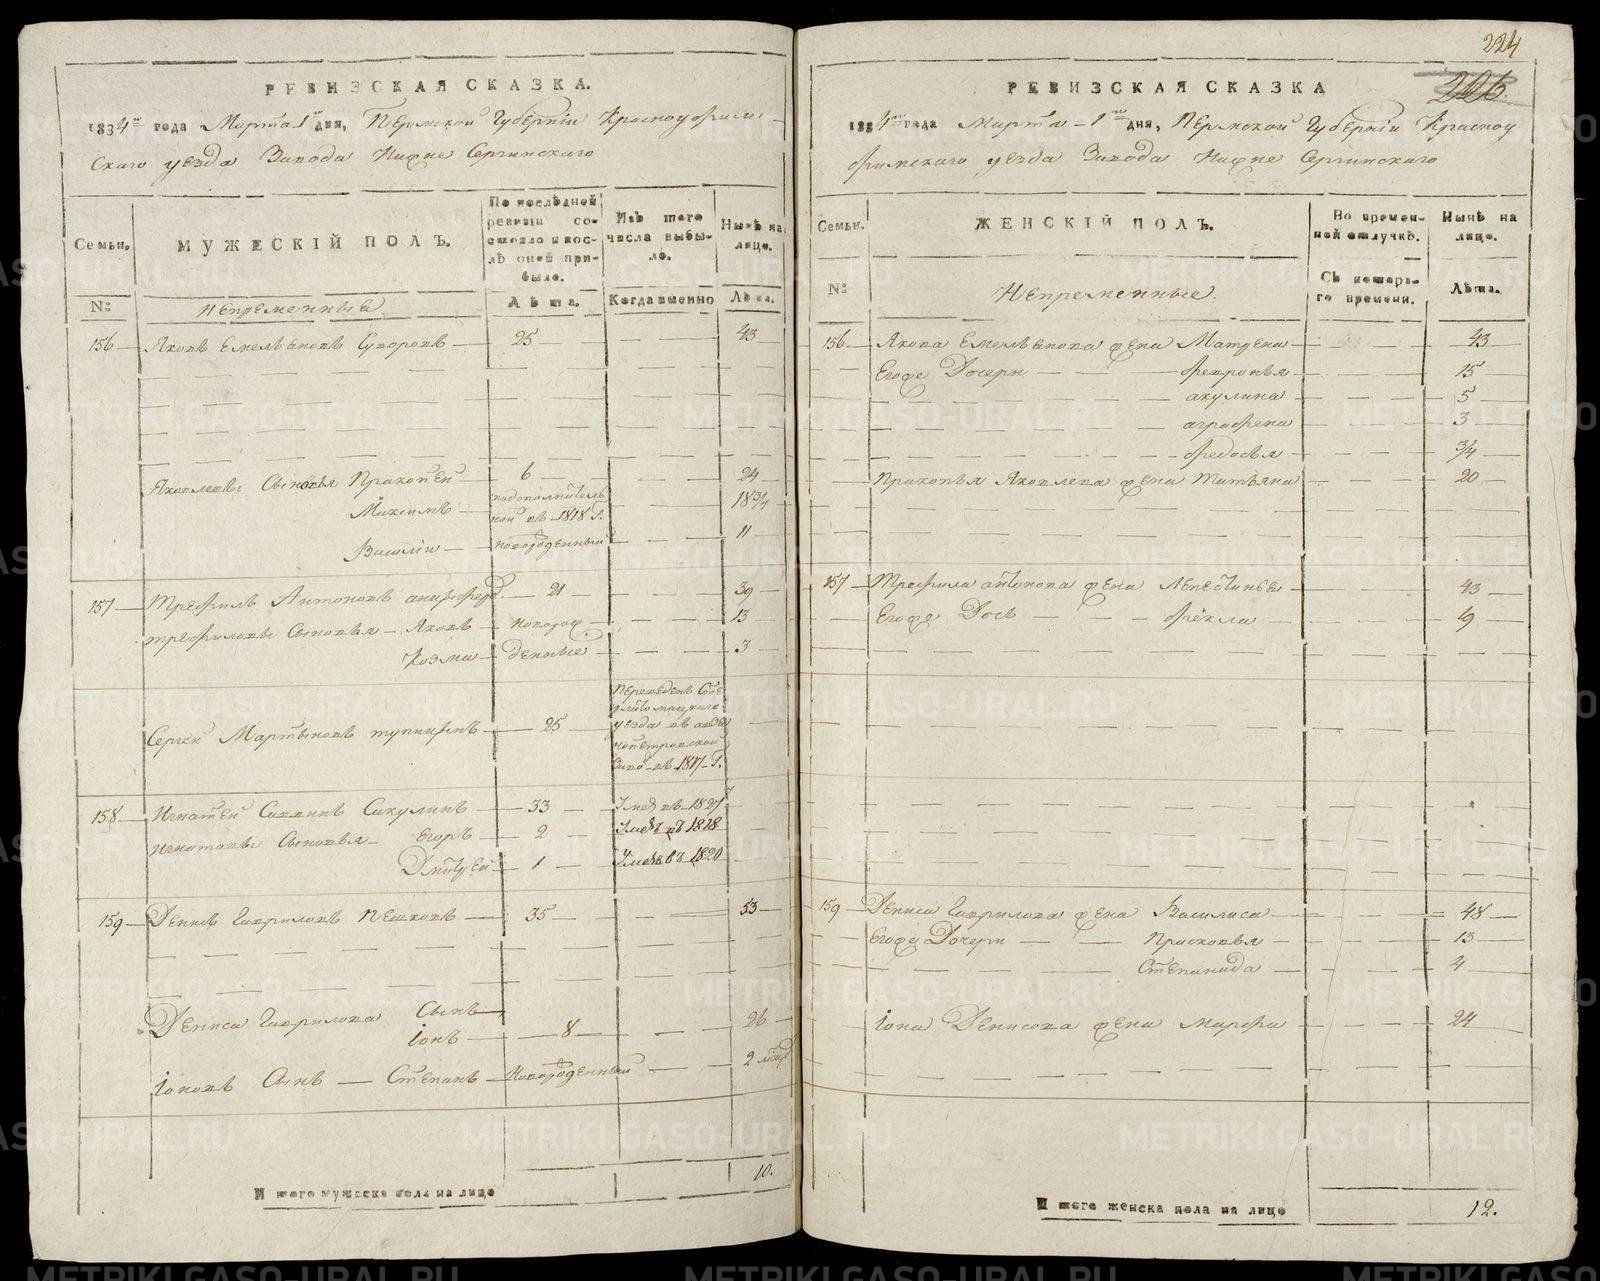 РЕВИЗСКАЯ СКАЗКА.
1834го года Марта 1го дня, Пермской Губерніи Красноуфим-
скаго уезда Завода Нижне Сергинскаго
Семьи.
МУЖЕСКІЙ ПОЛЪ.
По послѣдней ревизіи состояло и послѣ оной прибыло.
Изъ того числа выбыло.
Нынѣ на лице.
№
Непременные
Лѣта.
Когда именно
Лѣта.
156 Яковъ Емельяновъ Суворовъ 25 43
Яковлевы Сыновья Пракопей 6 24
Максимъ по дополнительной въ 1818 г. 18 3/4
Василій новорожденный 11
157 Трефилъ Антоновъ 21 39
трефиловы Сыновья Яковъ новорож 13
Козма денные 3
Сергей Мартыновъ 25 Переведенъ уезда въ 1817 г.
158 Игнатей Савинъ Сакулинъ 33 Умеръ въ 1827
игнатовы Сыновья Егоръ 2 Умеръ въ 1818
Дмитрей 1 Умеръ въ 1820
159 Денисъ Гавриловъ Пешковъ 35 53
Дениса Гаврилова Сынъ
Іонъ 8 26
Іоновъ Сынъ Степанъ Новорожденный 2 мѣсяц
Итого мужеска пола на лице 10.
224
226.
РЕВИЗСКАЯ СКАЗКА
1834го года Марта 1го дня, Пермской Губерніи Красноу
фимскаго уезда Завода Нижне Сергинскаго
Семьи.
ЖЕНСКІЙ ПОЛЪ.
Во временной отлучкѣ.
Нынѣ на лице.
№
Непременные.
Съ котораго времени.
Лѣта.
156 Якова Емельянова жена Матрена 43
Егоже Дочери Февронья 15
акулина 5
аграфена 3
Федосья 3/4
Пракопья Яковлева жена Татьяна 20
157 Трефила антонова жена 43
Егоже Дочь Фекла 19
159 Дениса Гаврилова жена Василиса 48
Егоже Дочери Прасковья 13
Степанида 4
Іона Денисова жена Марфа 24
Итого женска пола на лице 12.
METRIKI.GASO-URAL.RU